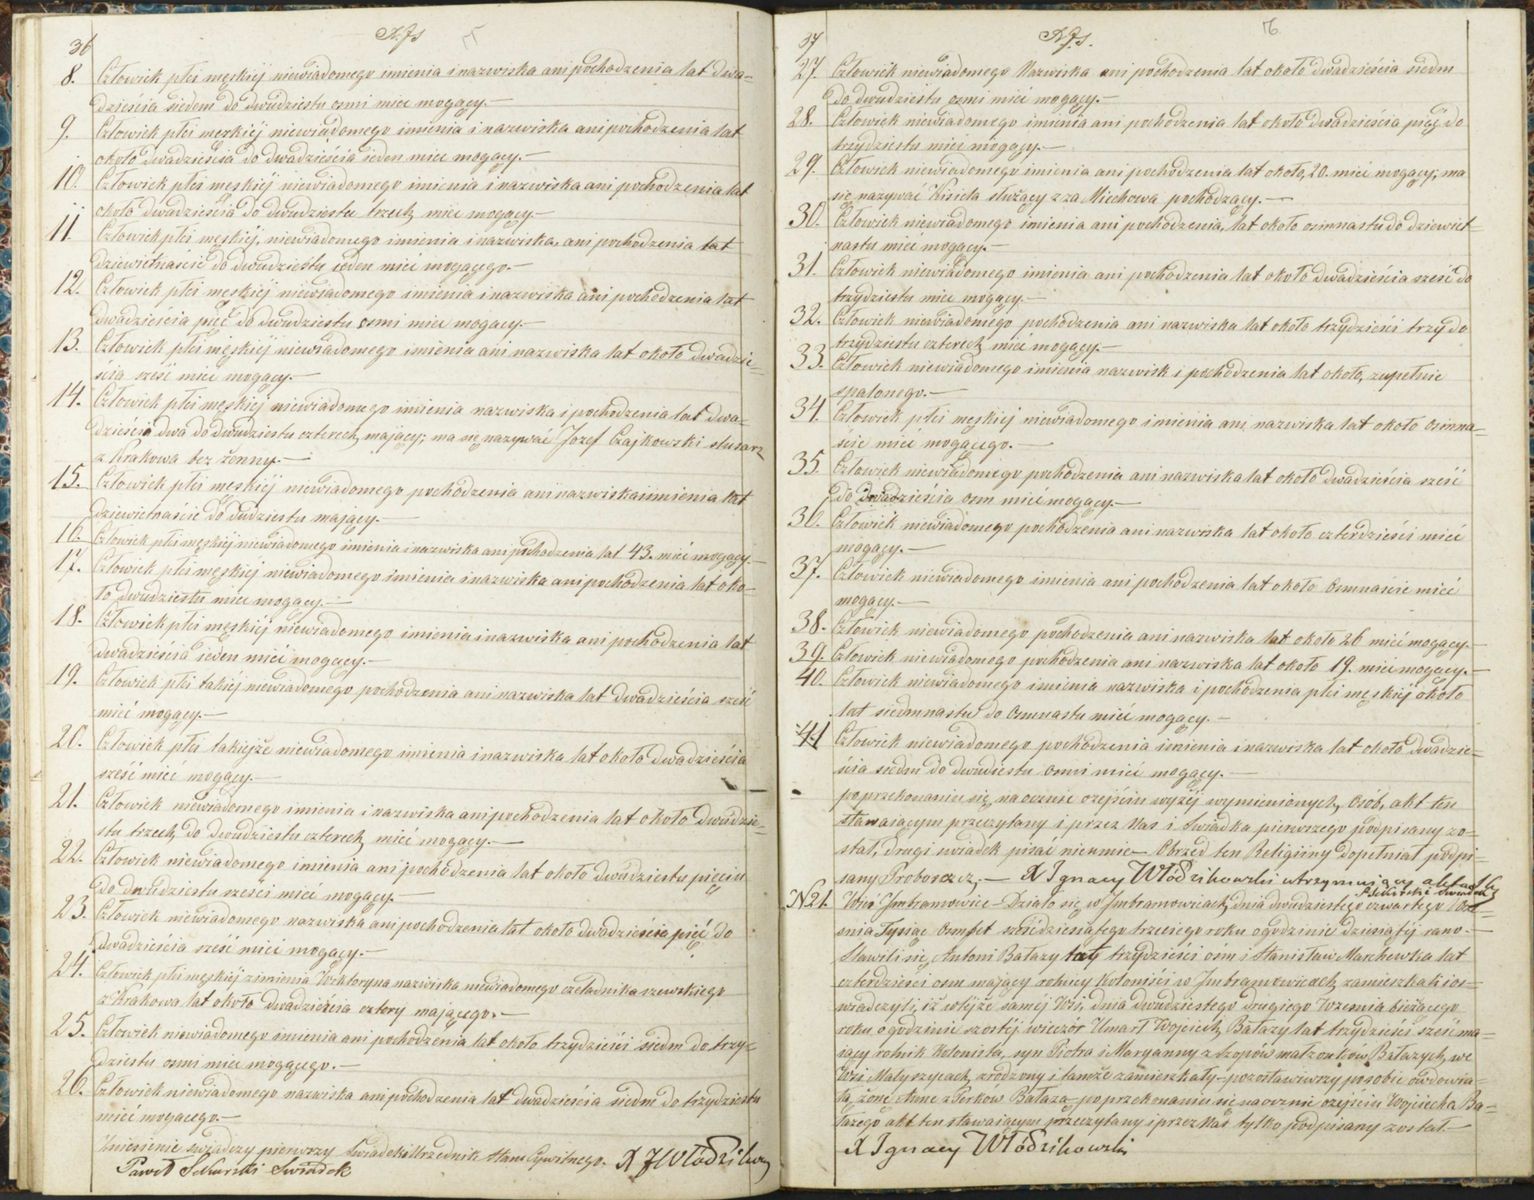 36
8. Człowiek płci męskiéj niewiadomego imienia i nazwiska ani pochodzenia lat dwa=
dzieścia siedem do dwudziestu osmi mieć mogący.—
9. Człowiek płci męskiéj niewiadomego imienia i nazwiska ani pochodzenia lat
około dwadzieścia do dwadzieścia ieden mieć mogący.—
10. Człowiek płci męskiéj niewiadomego imienia i nazwiska ani pochodzenia lat
około dwadzieścia do dwudziestu trzech mieć mogący.—
11 Człowiek płci męskiéj, niewiadomego imienia i nazwiska, ani pochodzenia lat
dziewietnaście do dwudziestu ieden mieć mogącego.—
12. Człowiek płci męskiéj niewiadomego imienia i nazwiska ani pochodzenia lat
dwadzieścia pięć do dwudziestu osmi mieć mogący.—
13. Człowiek płci męskiéj niewiadomego imienia ani nazwiska lat około dwadzie=
ścia sześć mieć mogący.—
14. Człowiek płci męskiéj niewiadomego imienia nazwiska i pochodzenia lat dwa=
dzieścia dwa do dwudziestu czterech mający; ma się nazywać Jozef Czajkowski slusarz
z Krakowa bez żenny.—
15. Człowiek płci męskiéj niewiadomego pochodzenia ani nazwiska i imienia lat
dziewietnaście do dudziestu mający.—
16. Człowiek płci męskiéj niewiadomego imienia i nazwiska ani pochodzenia lat 43. mieć mogący.—
17. Człowiek płci męskiéj niewiadomego imienia i nazwiska ani pochodzenia lat oko=
ło dwudziestu mieć mogący.—
18. Człowiek płci męskiéj niewiadomego imienia i nazwiska ani pochodzenia lat
dwadzieścia ieden mieć mogący.—
19. Człowiek płci takiéj niewiadomego pochodzenia ani nazwiska lat dwadzieścia sześć
mieć mogący.—
20. Człowiek płci takiejże niewiadomego imienia i nazwiska lat około dwadzieścia
sześć mieć mogący.—
21. Człowiek niewiadomego imienia i nazwiska ani pochodzenia lat około dwudzie=
stu trzech do dwudziestu czterech mieć mogący.—
22. Człowiek niewiadomego imienia ani pochodzenia lat około dwudziestu pięciu
do dwudziestu sześci mieć mogący.—
23. Człowiek niewiadomego nazwiska ani pochodzenia lat około dwadzieścia pięć do
dwadzieścia sześć mieć mogący.—
24. Człowiek płci męskiéj z imienia Wiktoryna nazwiska niewiadomego czeladnika szewskiego
z Krakowa lat około dwadzieścia cztery mającego.—
25. Człowiek niewiadomego imienia ani pochodzenia lat około trzydzieści siedm do trzy=
dziestu osmi mieć mogącego.—
26. Człowiek niewiadomego nazwiska ani pochodzenia lat dwadzieścia siedm do trzydziestu
mieć mogącego.—
Zniesienie swiadczy pierwszy Swiadek i Urzednik Stanu Cywilnego. X J Włodzikow
Paweł Swiadek
37
27. Człowiek niewiadomego Nazwiska ani pochodzenia lat około dwadzieścia siedm
do dwudziestu osmi mieć mogący.—
28. Człowiek niewiadomego imienia ani pochodzenia lat około dwadzieścia pięć do
trzydziestu mieć mogący.—
29. Człowiek niewiadomego imienia ani pochodzenia lat około, 20. mieć mogący; ma
się nazywać Kisiela służący z za Miechowa pochodzący.—
30. Człowiek niewiadomego imienia ani pochodzenia, lat około osimnastu do dziewiet=
nastu mieć mogący.—
31. Człowiek niewiadomego imienia ani pochodzenia lat około dwadzieścia sześć do
trzydziestu mieć mogący.—
32. Człowiek niewiadomego pochodzenia ani nazwiska lat około trzydzieści trzy do
trzydziestu czterech mieć mogący.—
33. Człowiek niewiadomego imienia nazwisk i pochodzenia lat około, zupełnie
spalonego.—
34. Człowiek płci męskiéj niewiadomego imienia ani nazwiska lat około osimna=
ście mieć mogącego.—
35 Człowiek niewiadomego pochodzenia ani nazwiska lat około dwadzieścia sześć
do dwadzieścia osm mieć mogący.—
36. Człowiek niewiadomego pochodzenia ani nazwiska lat około czterdzieści mieć
mogący.—
37. Człowiek niewiadomego imienia ani pochodzenia lat około osmnaście mieć
mogący.—
38. Człowiek niewiadomego pochodzenia ani nazwiska lat około 26 mieć mogący.—
39. Człowiek niewiadomego pochodzenia ani nazwiska lat około 19. mieć mogący.—
40. Człowiek niewiadomego imienia nazwiska i pochodzenia płci męskiéj około
lat siedmnastu do osmnastu mieć mogący.—
41 Człowiek niewiadomego pochodzenia imienia i nazwiska lat około dwadzie=
ścia siedm do dwudziestu osmi mieć mogący.—
po przekonaniu się naocznie o zejściu wyżéj wymienionych Osób, akt ten
stawaiącym przeczytany i przez Nas i Swiadka pierwszego podpisany zo=
stał, drugi swiadek pisać nieumie— Obrzęd ten Religiiny dopełniał podpi=
sany Proboszcz.— X Ignacy Włodzikowski utrzymujący akta
Swiadek
N21. Wieś Imbramowice Działo się w Imbramowicach dnia dwudziestego czwartego Wrze=
śnia Tysiąc Ośmset sześdziesiątego trzeciego roku o godzinie dziesiątéj rano.—
Stawili się, Antoni Bałazy lat trzydzieści ósm i Stanisław Marchewka lat
czterdzieści osm mający rolnicy Koloniści w Imbramowicach zamieszkali i os=
wiadczyli, iż w tejże saméj Wsi, dnia dwudziestego drugiego Wrzesnia bieżącego
roku, o godzinie szostéj wieczór Umarł Wojciech Bałazy lat trzydzieści sześć ma=
iący rolnik Kolonista, syn Piotra i Maryanny z Szopów małzonków Bałazych, we
Wsi Małyszycach zrodzony i tamże zamieszkały, pozostawiwszy po sobie owdowia=
łą żonę Annę z Bałaza po przekonaniu się naocznie o zejściu Wojciecha Ba=
łażego akt ten stawaiącym przeczytany i przez Nas tylko podpisany został.
X Ignacy Włodzikowski